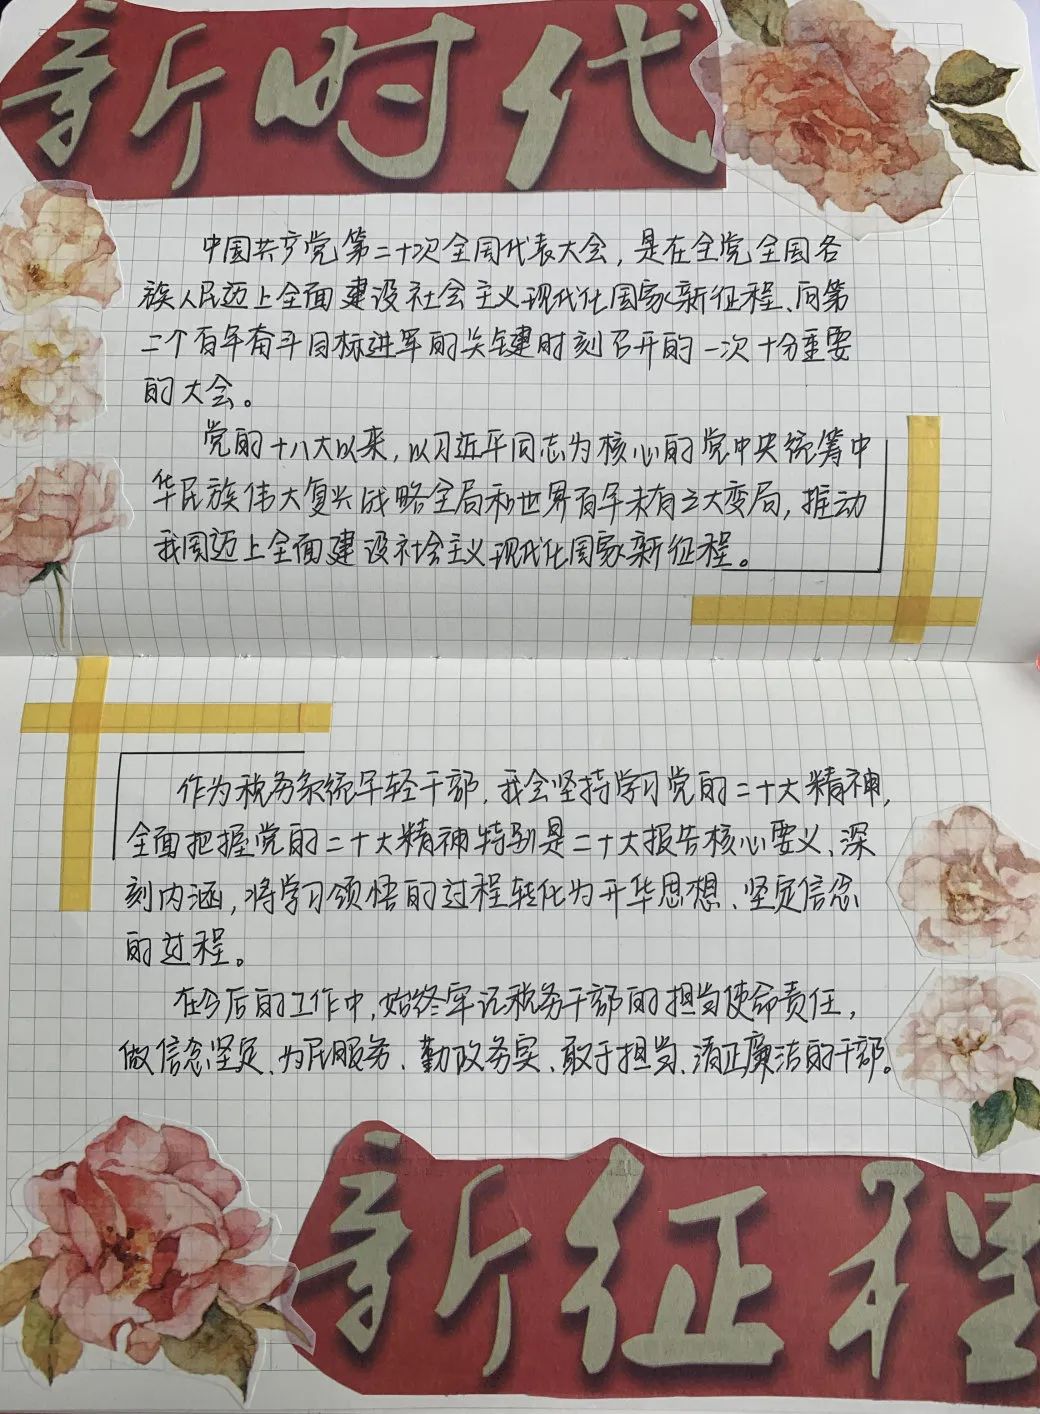 新时代
中国共产党第二十次全国代表大会，是在全党全国各
族人民迈上全面建设社会主义现代化国家新征程、向第
二个百年奋斗目标进军的关键时刻召开的一次十分重要
的大会。
党的十八大以来，以习近平同志为核心的党中央统筹中
华民族伟大复兴战略全局和世界百年未有之大变局，推动
我国迈上全面建设社会主义现代化国家新征程。
作为税务系统年轻干部，我会坚持学习党的二十大精神，
全面把握党的二十大精神特别是二十大报告核心要义、深
刻内涵，将学习领悟的过程转化为升华思想、坚定信念
的过程。
在今后的工作中，始终牢记税务干部的担当使命责任，
做信念坚定、为民服务、勤政务实、敢于担当、清正廉洁的干部。
新征程